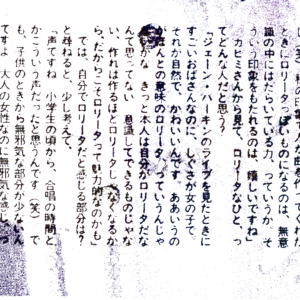 ときにロリータっぽいものになるのは、無意
識の中にはたらいている力、っていうか、そ
ういう印象をもたれるのは、嬉しいですね」
カヒミさんから見て、ロリータなひと、っ
てどんな人だと思う？
「ジェーン・バーキンのライブを見たときに
すごいおばさんなのに、しぐさが女の子で、
それが自然で、かわいいんです。ああいうの
がほんとの意味のロリータっていうんじゃ
ないかな。きっと本人は自分がロリータだな
んて思ってない。意識してできるものじゃな
い、作れば作るほどロリータじゃなくなるか
ら。だからこそロリータって魅力的なのかも」
では、自分でロリータだと感じる部分は？
と尋ねると、少し考えて、
「声ですね。小学生の頃から、合唱の時間と
かこういう声だったと思うんです（笑）。で
も、子供のときから無邪気な部分が少ないん
ですよ。大人の女性なのに無邪気な感じ